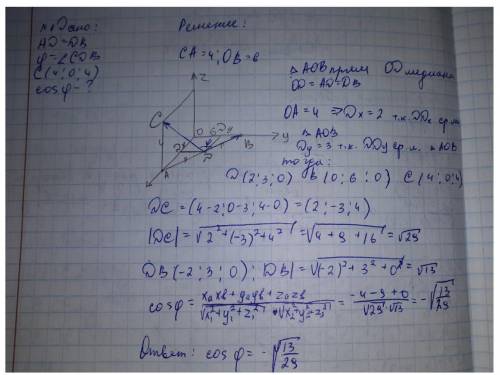 Дано:
AD=DB
φ=∠CDB
C(4;0;4)
cosφ-?
Решение:
CA=4; OB=6
Z
C
O
6
Dy
B
y
Dx
D
A
△AOB прям OD медиана
OD=AD=DB
OA=4 ⇒ Dx=2 т.к. DDx ср.л.
△AOB
Dy=3 т.к. DDy ср.л. △AOB
тогда:
D(2;3;0) B(0;6;0) C(4;0;4)
DC=(4-2;0-3;4-0)=(2;-3;4)
|DC|=√2²+(-3)²+4²=√4+9+16=√29
DB(-2;3;0); |DB|=√(-2)²+3²+0²=√13
cosφ=(xaxb+yayb+zazb)/(√x₁²+y₁²+z₁²·√x₂²+y₂²+z₂²)=(-4-9+0)/(√29·√13)=-√13/29
Ответ: cosφ=-√13/29